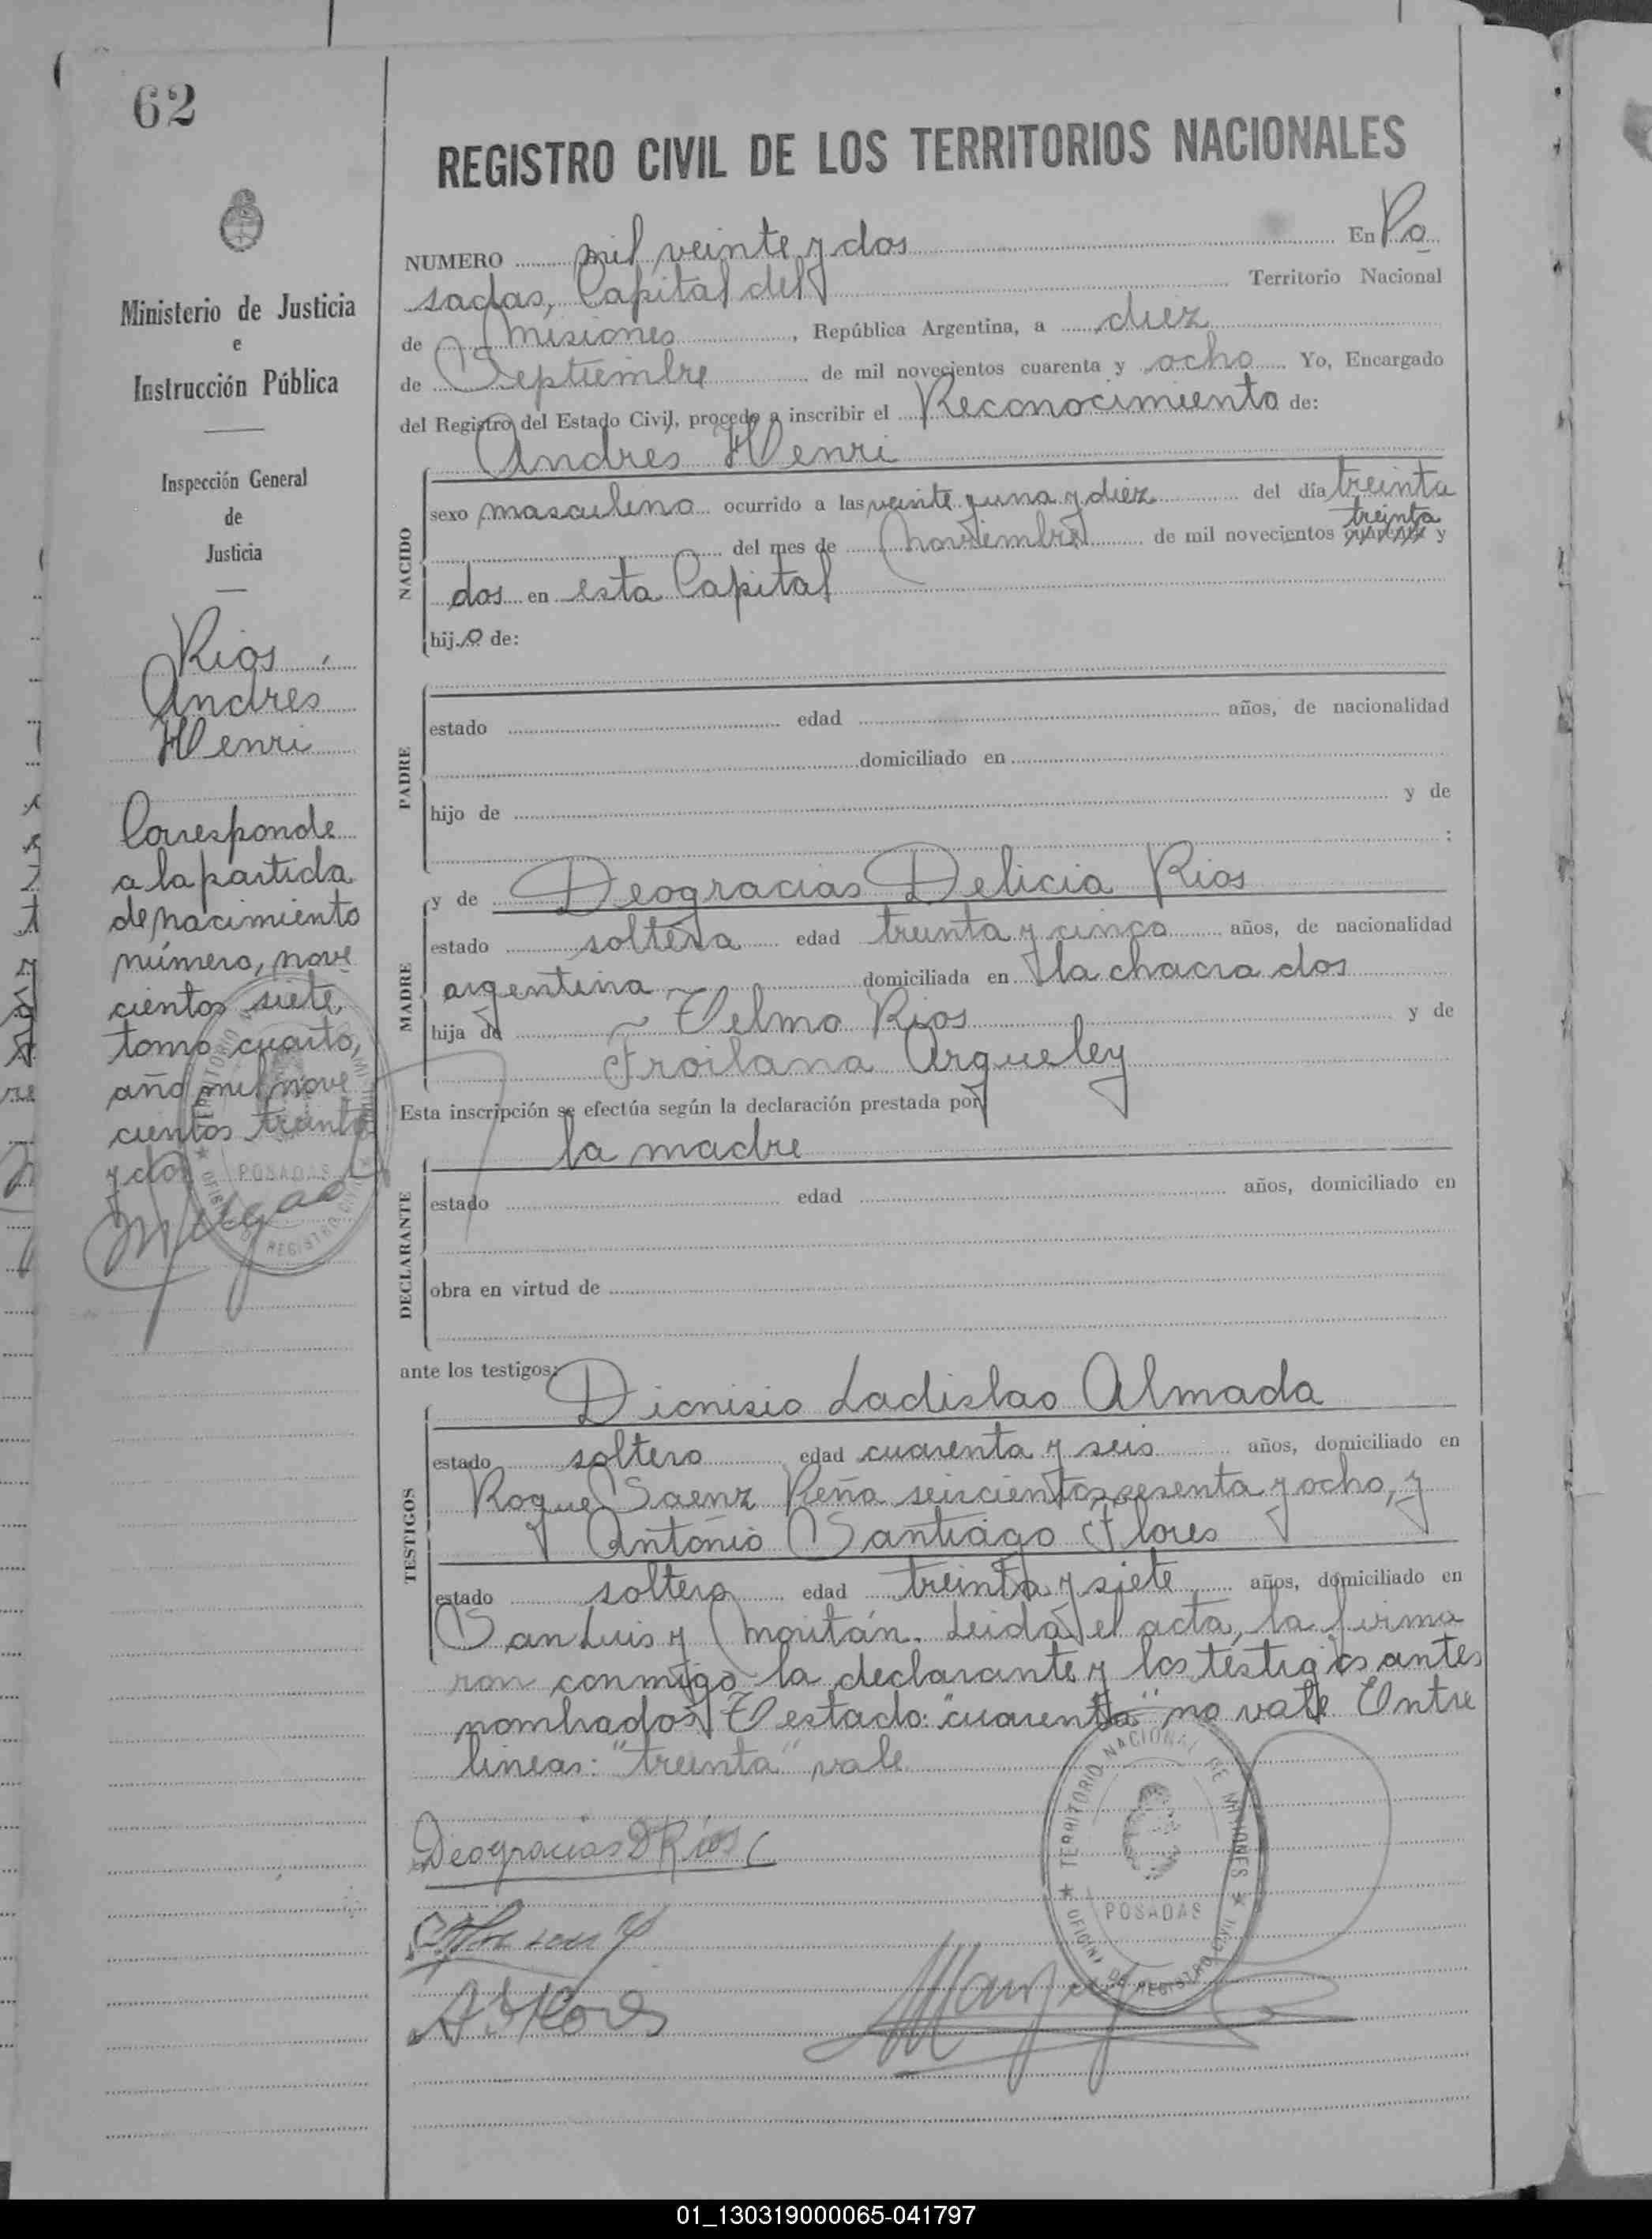 62
REGISTRO CIVIL DE LOS TERRITORIOS NACIONALES
Ministerio de Justicia
e
Instrucción Pública
Inspección General
de
Justicia
Rios,
Andres
Henri
Corresponde
a la partida
de nacimiento
número, nove
cientos siete,
tomo cuarto,
año mil nove
cientos treinta
y dos
NUMERO mil veinte y dos En Po
sadas, Capital del Territorio Nacional
de Misiones, República Argentina, a diez
de Septiembre de mil novecientos cuarenta y ocho Yo, Encargado
del Registro del Estado Civil, procedo a inscribir el Reconocimiento de:
Andres Henri
NACIDO
sexo masculino ocurrido a las veinte y una y diez del día treinta
treinta
del mes de Noviembre de mil novecientos cuarenta y
dos en esta Capital
hijo de:
PADRE
estado edad años, de nacionalidad
domiciliado en
hijo de y de
:
MADRE
y de Deogracias Delicia Rios
estado soltera edad treinta y cinco años, de nacionalidad
argentina domiciliada en la chacra dos
hija de Telmo Rios y de
Froilana Arqueley
Esta inscripción se efectúa según la declaración prestada por
la madre
DECLARANTE
estado edad años, domiciliado en
obra en virtud de
ante los testigos:
Dionisio Ladislao Almada
TESTIGOS
estado soltero edad cuarenta y seis años, domiciliado en
Roque Saenz Peña seiscientos sesenta y ocho, y
Antonio Santiago Flores
estado soltero edad treinta y siete años, domiciliado en
San Luis y Moritán. Leida el acta, la firma
ron conmigo la declarante y los testigos antes
nombrados Testado: "cuarenta" no vale Entre
lineas: "treinta" vale
Deogracias D Rios
A S Flores
TERRITORIO NACIONAL DE MISIONES
POSADAS
OFICINA DE REGISTRO CIVIL
POSADAS
01_130319000065-041797